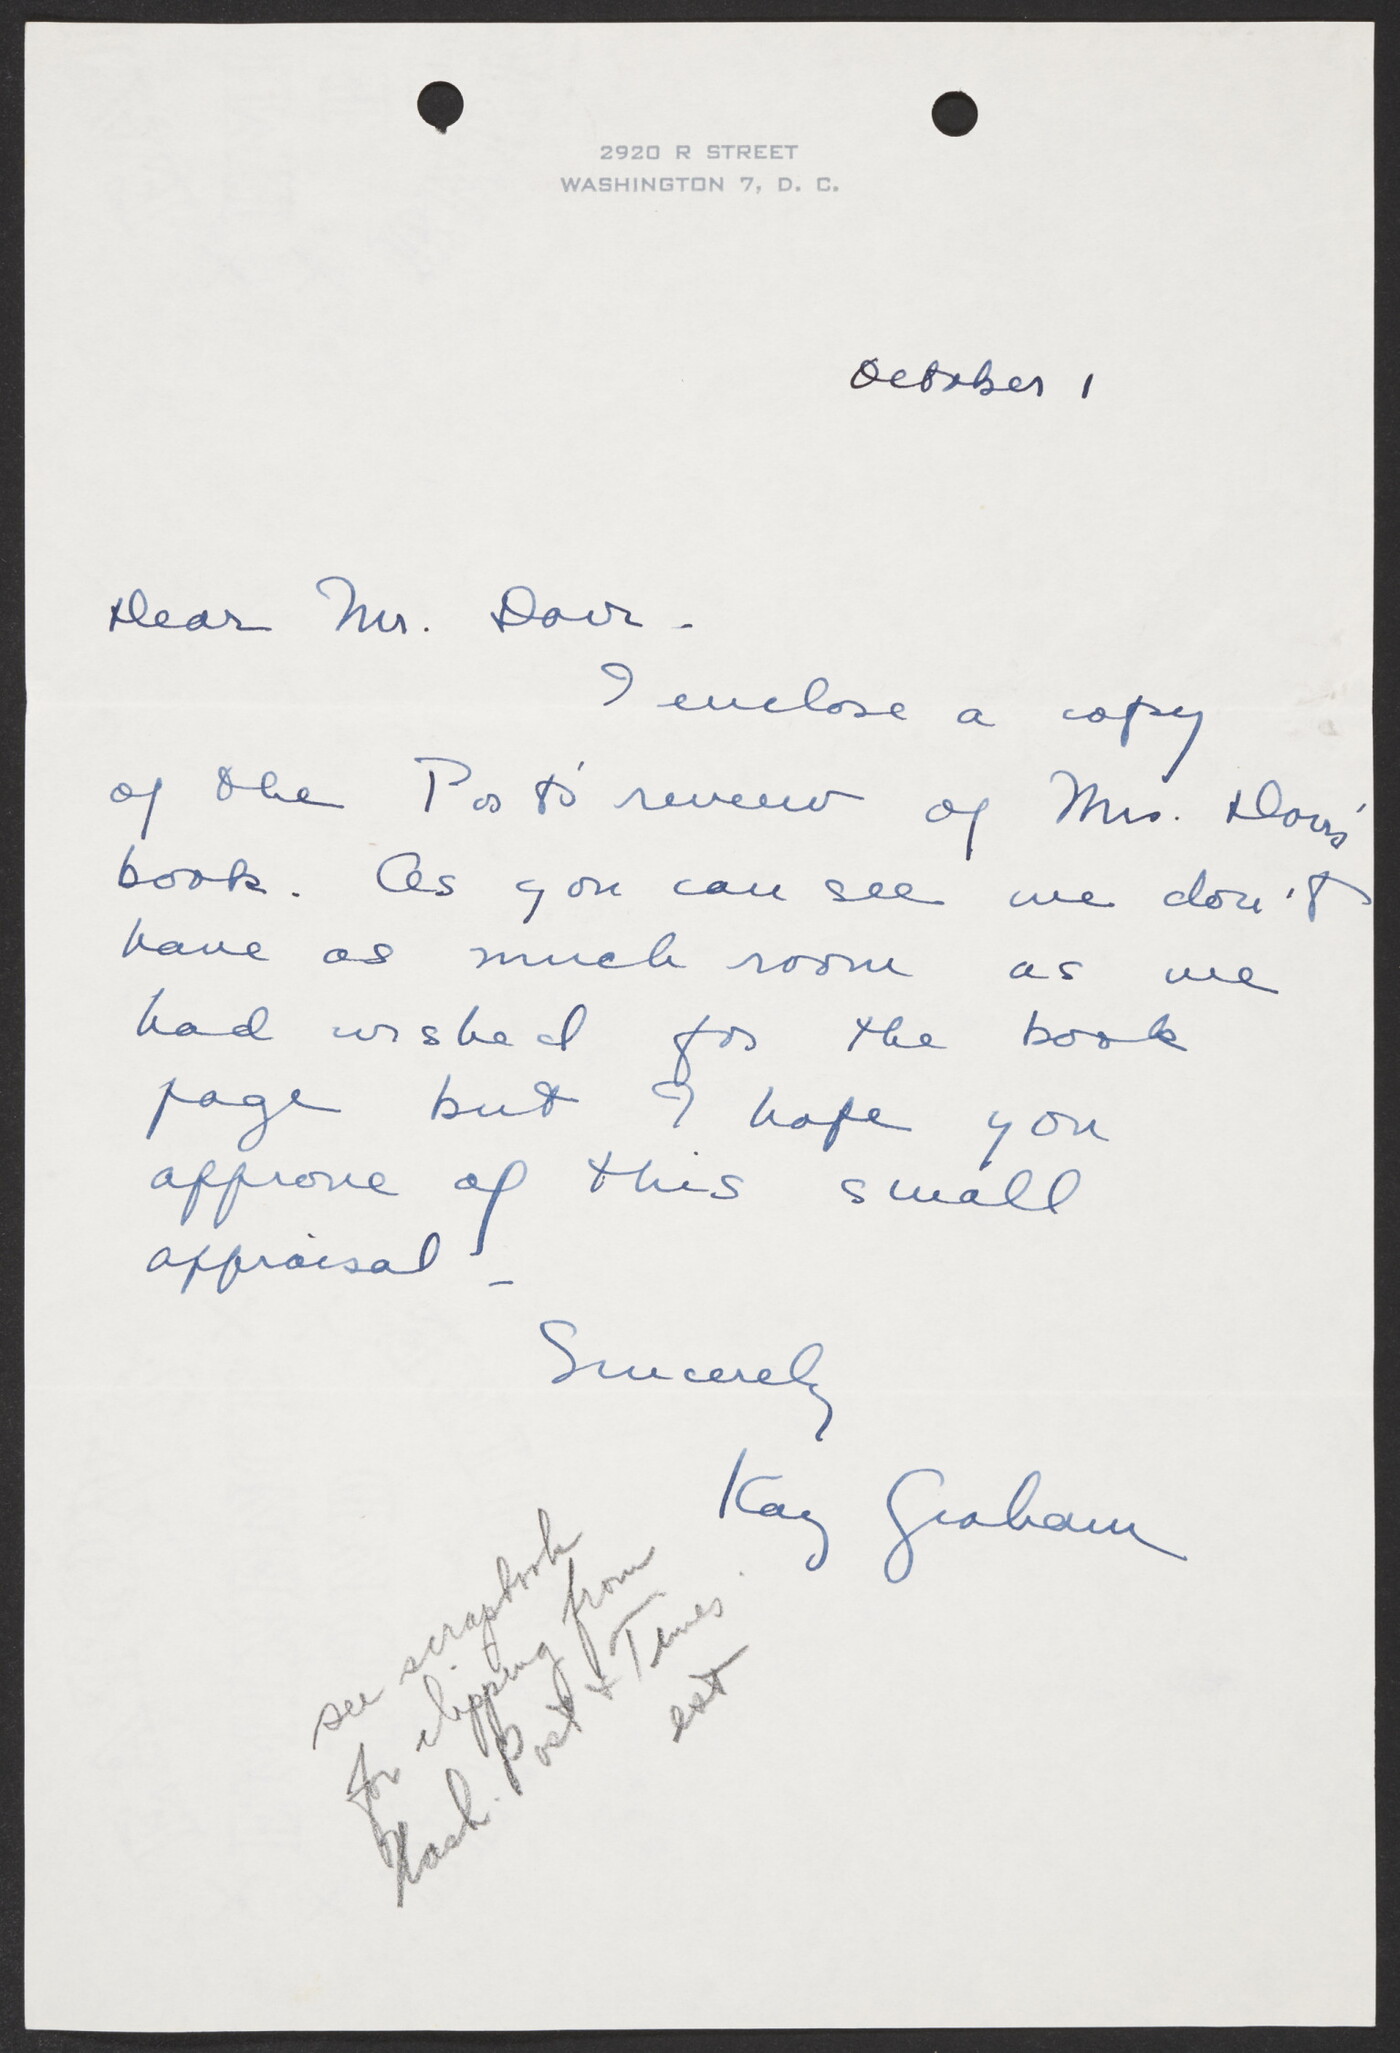 2920 R STREET
WASHINGTON 7, D. C.
October 1
Dear Mr. Davis -
I enclose a copy
of the Post's review of Mrs. Davis'
book. As you can see we don't
have as much room as we
had wished for the book
page but I hope you
approve of this small
appraisal -
Sincerely
Kay Graham
see scrapbook
for clipping from
Wash. Post & Times.
est